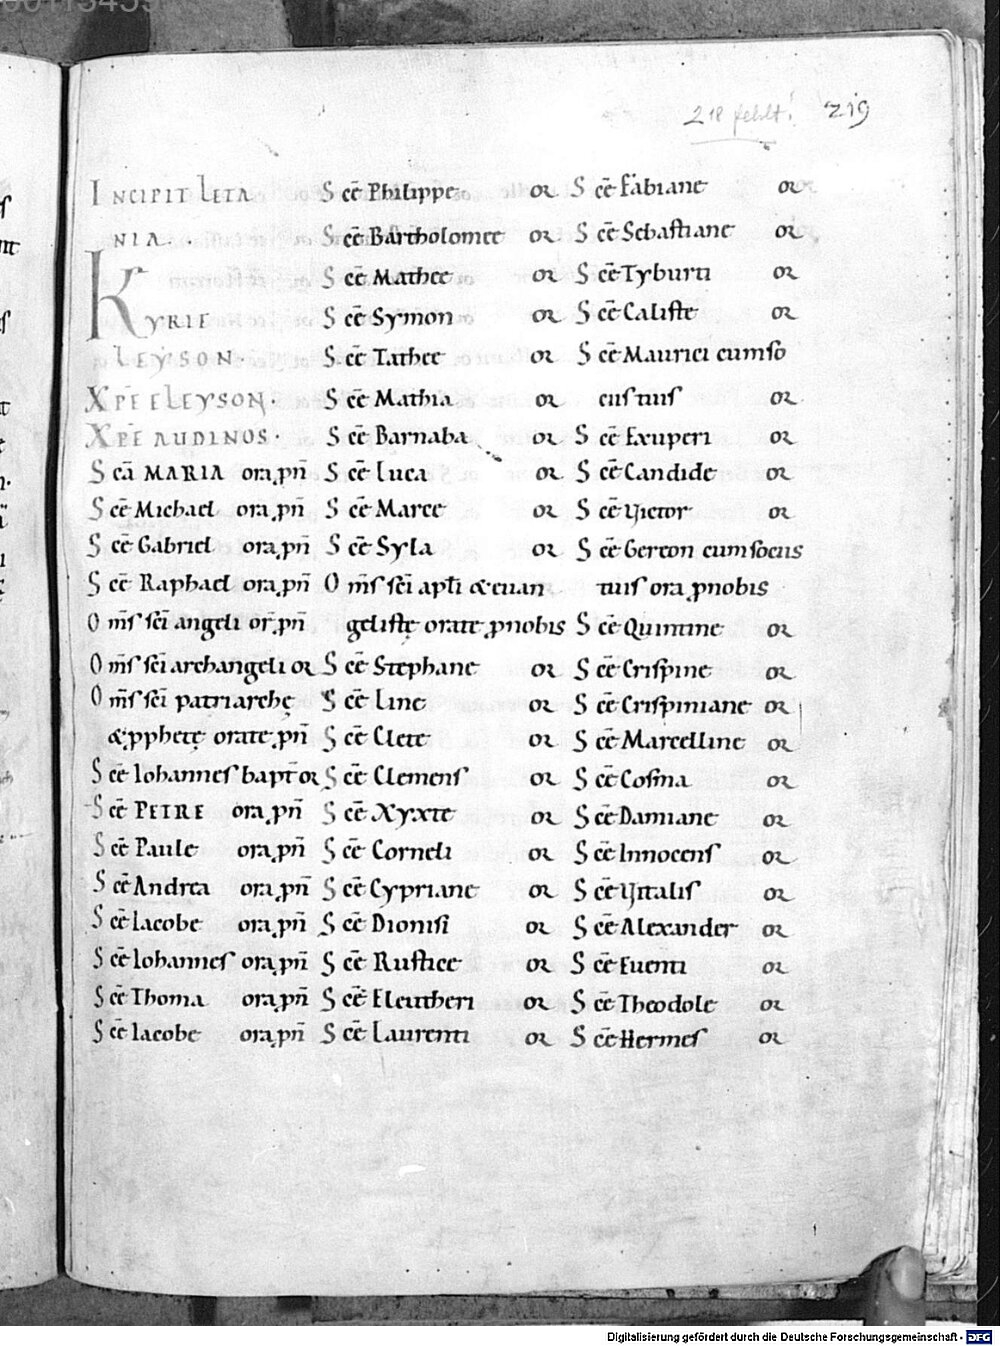 218 fehlt! 219
INCIPIT LETA
NIA .
KYRIE
LEYSON
XPE ELEYSON .
XPE AUDI NOS .
S cā MARIA ora p̱ n̄
S cē Michael ora p̱ n̄
S cē Gabriel ora p̱ n̄
S cē Raphael ora p̱ n̄
O m̄s sc̄i angeli or̄ p̱ n̄
O m̄s sc̄i archangeli or
O m̄s sc̄i patriarchę
& p̱phetę orate p̱ n̄
S cē Iohannes bapt̄ or
S cē PETRE ora p̱ n̄
S cē Paule ora p̱ n̄
S cē Andrea ora p̱ n̄
S cē Iacobe ora p̱ n̄
S cē Iohannes ora p̱ n̄
S cē Thoma ora p̱ n̄
S cē Iacobe ora p̱ n̄
S cē Philippe or
S cē Bartholomee or
S cē Mathee or
S cē Symon or
S cē Tathee or
S cē Mathia or
S cē Barnaba or
S cē Luca or
S cē Marce or
S cē Syla or
O m̄s sc̄i apl̄i & euan
gelistę orate p̱ nobis
S cē Stephane or
S cē Line or
S cē Clete or
S cē Clemens or
S cē Xyxte or
S cē Corneli or
S cē Cypriane or
S cē Dionisi or
S cē Rustice or
S cē Eleutheri or
S cē Laurenti or
S cē Fabiane or
S cē Sebastiane or
S cē Tyburti or
S cē Calixte or
S cē Maurici cum so
ciis tuis or
S cē Exuperi or
S cē Candide or
S cē Victor or
S cē Gereon cum sociis
tuis ora p̱ nobis
S cē Quintine or
S cē Crispine or
S cē Crispiniane or
S cē Marcelline or
S cē Cosma or
S cē Damiane or
S cē Innocens or
S cē Vitalis or
S cē Alexander or
S cē Euenti or
S cē Theodole or
S cē Hermes or
Digitalisierung gefördert durch die Deutsche Forschungsgemeinschaft - DFG